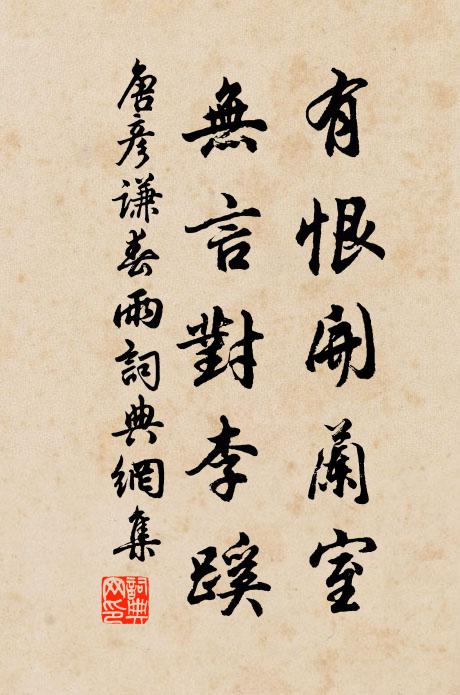 有恨開蘭室
無言對李蹊
唐彥謙春雨詞典網集
詞典網印